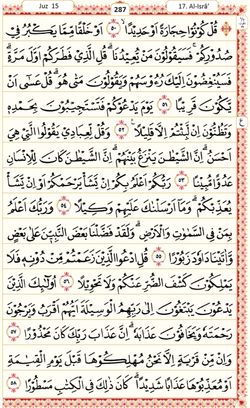 Juz 15
287
17. Al-Isrâ'
قُلْ كُونُوا حِجَارَةً أَوْ حَدِيدًا ٥٠ أَوْ خَلْقًا مِمَّا يَكْبُرُ فِي
صُدُورِكُمْ فَسَيَقُولُونَ مَنْ يُعِيدُنَا قُلِ الَّذِي فَطَرَكُمْ أَوَّلَ مَرَّةٍ
فَسَيُنْغِضُونَ إِلَيْكَ رُءُوسَهُمْ وَيَقُولُونَ مَتٰى هُوَ قُلْ عَسٰى أَنْ
يَكُونَ قَرِيبًا ٥١ يَوْمَ يَدْعُوكُمْ فَتَسْتَجِيبُونَ بِحَمْدِهِ
وَتَظُنُّونَ إِنْ لَبِثْتُمْ إِلَّا قَلِيلًا ٥٢ وَقُلْ لِعِبَادِي يَقُولُوا الَّتِي هِيَ
أَحْسَنُ إِنَّ الشَّيْطٰنَ يَنْزَغُ بَيْنَهُمْ إِنَّ الشَّيْطٰنَ كَانَ لِلْإِنْسَانِ
عَدُوًّا مُبِينًا ٥٣ رَبُّكُمْ أَعْلَمُ بِكُمْ إِنْ يَشَأْ يَرْحَمْكُمْ أَوْ إِنْ يَشَأْ
يُعَذِّبْكُمْ وَمَا أَرْسَلْنٰكَ عَلَيْهِمْ وَكِيلًا ٥٤ وَرَبُّكَ أَعْلَمُ
بِمَنْ فِي السَّمٰوَاتِ وَالْأَرْضِ وَلَقَدْ فَضَّلْنَا بَعْضَ النَّبِيِّينَ عَلٰى بَعْضٍ
وَآتَيْنَا دَاوُدَ زَبُورًا ٥٥ قُلِ ادْعُوا الَّذِينَ زَعَمْتُمْ مِنْ دُونِهِ فَلَا
يَمْلِكُونَ كَشْفَ الضُّرِّ عَنْكُمْ وَلَا تَحْوِيلًا ٥٦ أُولٰئِكَ الَّذِينَ
يَدْعُونَ يَبْتَغُونَ إِلٰى رَبِّهِمُ الْوَسِيلَةَ أَيُّهُمْ أَقْرَبُ وَيَرْجُونَ
رَحْمَتَهُ وَيَخَافُونَ عَذَابَهُ إِنَّ عَذَابَ رَبِّكَ كَانَ مَحْذُورًا
٥٧ وَإِنْ مِنْ قَرْيَةٍ إِلَّا نَحْنُ مُهْلِكُوهَا قَبْلَ يَوْمِ الْقِيٰمَةِ
أَوْ مُعَذِّبُوهَا عَذَابًا شَدِيدًا كَانَ ذٰلِكَ فِي الْكِتٰبِ مَسْطُورًا ٥٨